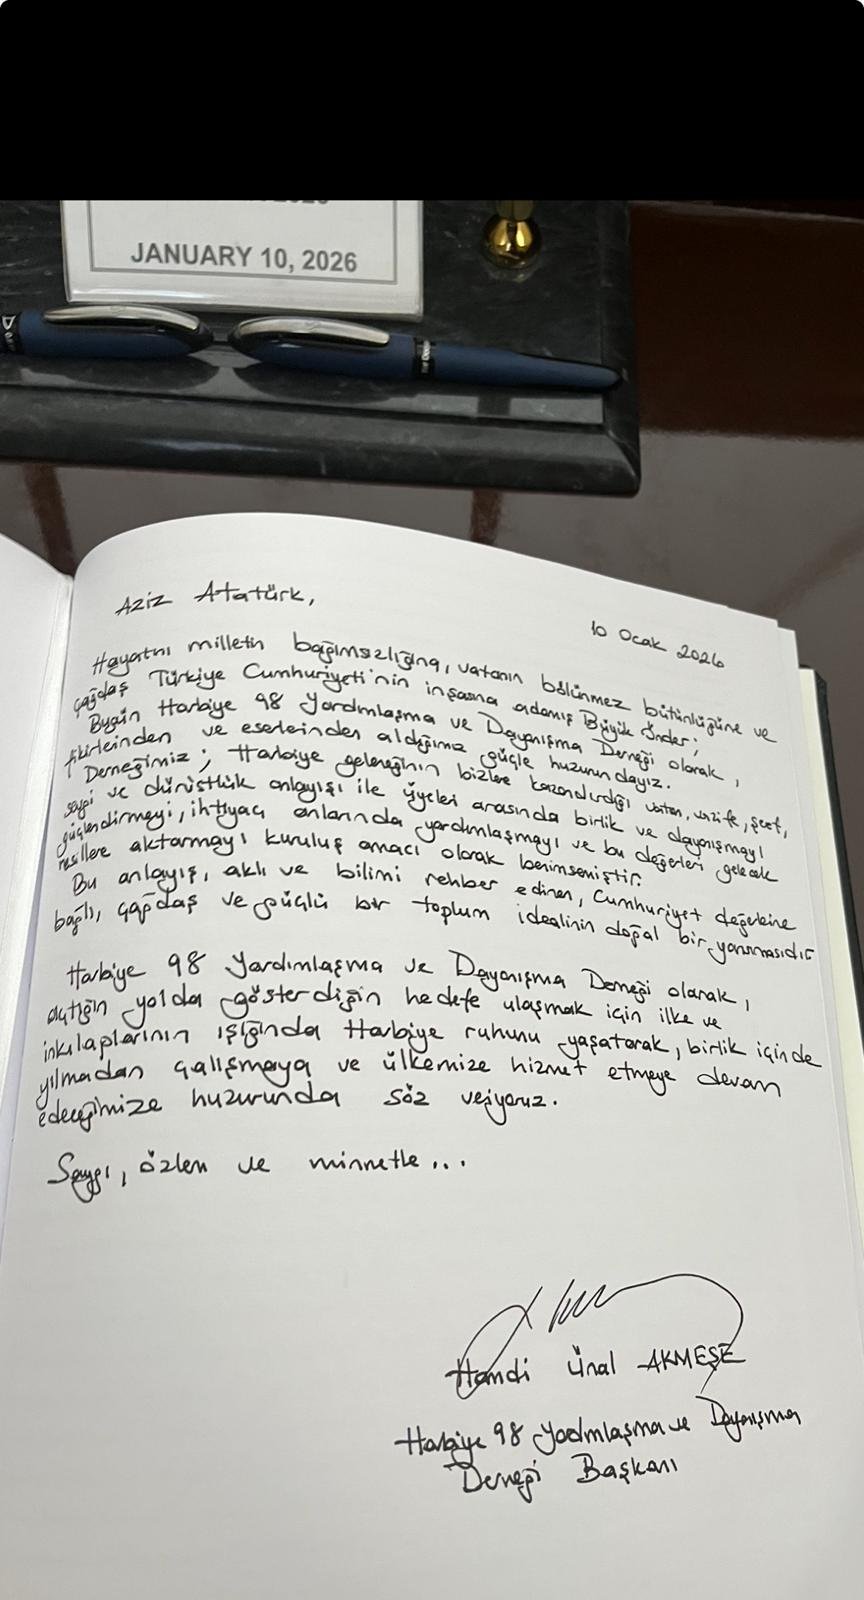 JANUARY 10, 2026
Aziz Atatürk,
10 Ocak 2026
Hayatını milletin bağımsızlığına, vatanın bölünmez bütünlüğüne ve
çağdaş Türkiye Cumhuriyeti'nin inşasına adamış Büyük Önder;
Bugün Harbiye 98 Yardımlaşma ve Dayanışma Derneği olarak,
fikirleinden ve eserleinden aldığımız güçle huzurundayız.
Derneğimiz; Harbiye geleneğinin bizlere kazandırdığı vatan, vazife, şeref,
saygı ve dürüstlük anlayışı ile üyeleri arasında birlik ve dayanışmayı
güçlendirmeyi, ihtiyaç anlarında yardımlaşmayı ve bu değerleri gelecek
nesillere aktarmayı kuruluş amacı olarak benimsemiştir.
Bu anlayış, aklı ve bilimi rehber edinen, Cumhuriyet değerleine
bağlı, çağdaş ve güçlü bir toplum idealinin doğal bir yansımasıdır
Harbiye 98 Yardımlaşma ve Dayanışma Derneği olarak,
açtığın yolda gösterdiğin hedefe ulaşmak için ilke ve
inkılaplarının ışığında Harbiye ruhunu yaşatarak, birlik içinde
yılmadan çalışmaya ve ülkemize hizmet etmeye devam
edeceğimize huzurunda söz veriyoruz.
Saygı, özlem ve minnetle...
Hamdi Ünal AKMEŞE
Harbiye 98 Yardımlaşma ve Dayanışma
Derneği Başkanı